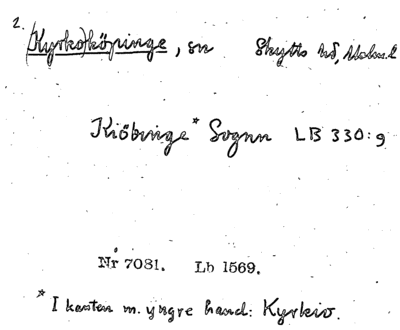 2.
(Kyrko)köpinge, sn Skytts hd, Malm. l
Kiöbinge* Sognn LB 330:9
Nr 7081. Lb 1569.
* I kanten m. yngre hand: Kyrkio.